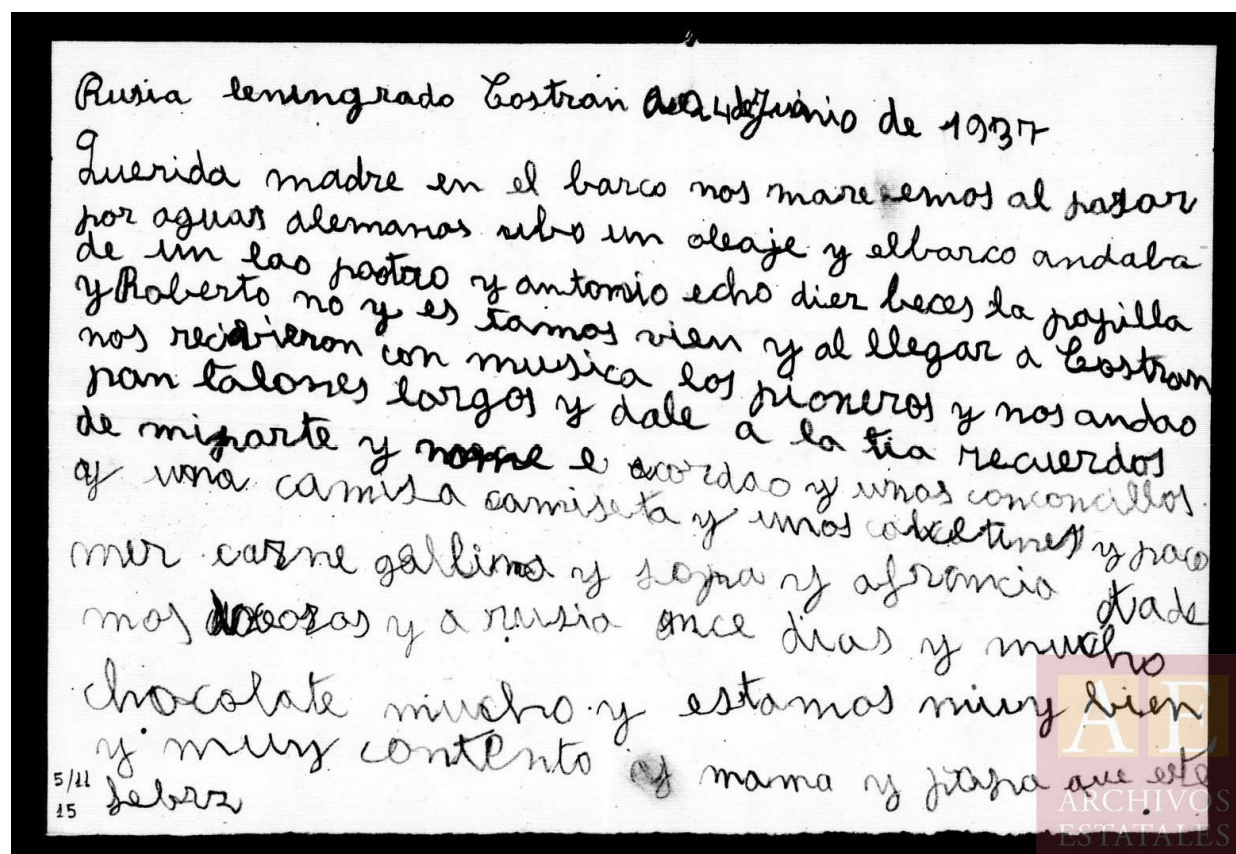 Rusia leningrado Costran 24 de Junio de 1937
Querida madre en el barco nos maremos al pasar
por aguas alemanas ubo un oleaje y elbarco andaba
de un lao paotro y antonio echo diez beces la papilla
y Roberto no y es tamos vien y al llegar a Costran
nos recivieron con musica los pioneros y nos andao
pan talones largos y dale a la tia recuerdos
de miparte y nome e acordao y unos conconcillos
y una camisa camiseta y unos calcetines y paco
mer carne gallina y sopa y afrancia
mos y a rusia once dias y mucho
chocolate mucho y estamos muy bien
y muy contento y mama y papa que este
5/11
15
AE
ARCHIVOS
ESTATALES